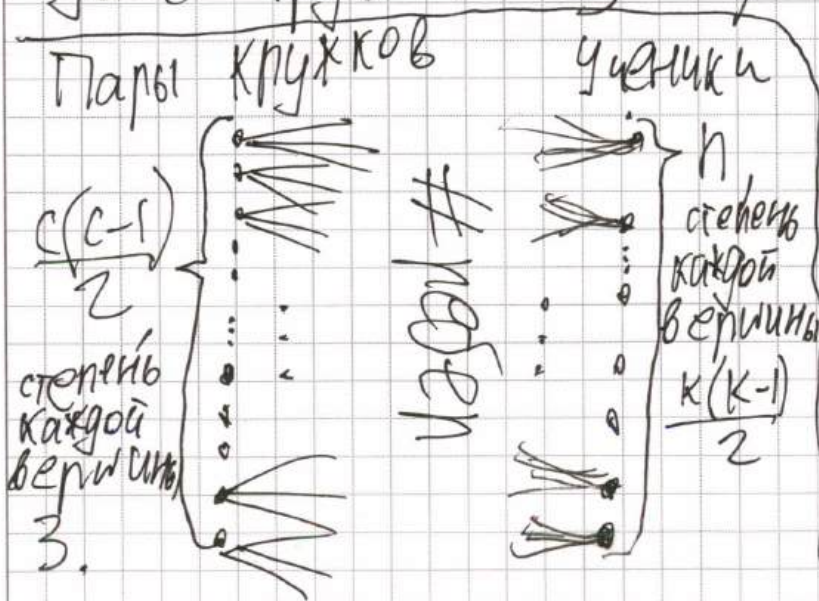 Пары кружков
Ученики
c(c-1)
2
степень
каждой
вершины
3.
#
рёбра
n
степень
каждой
вершины
k(k-1)
2